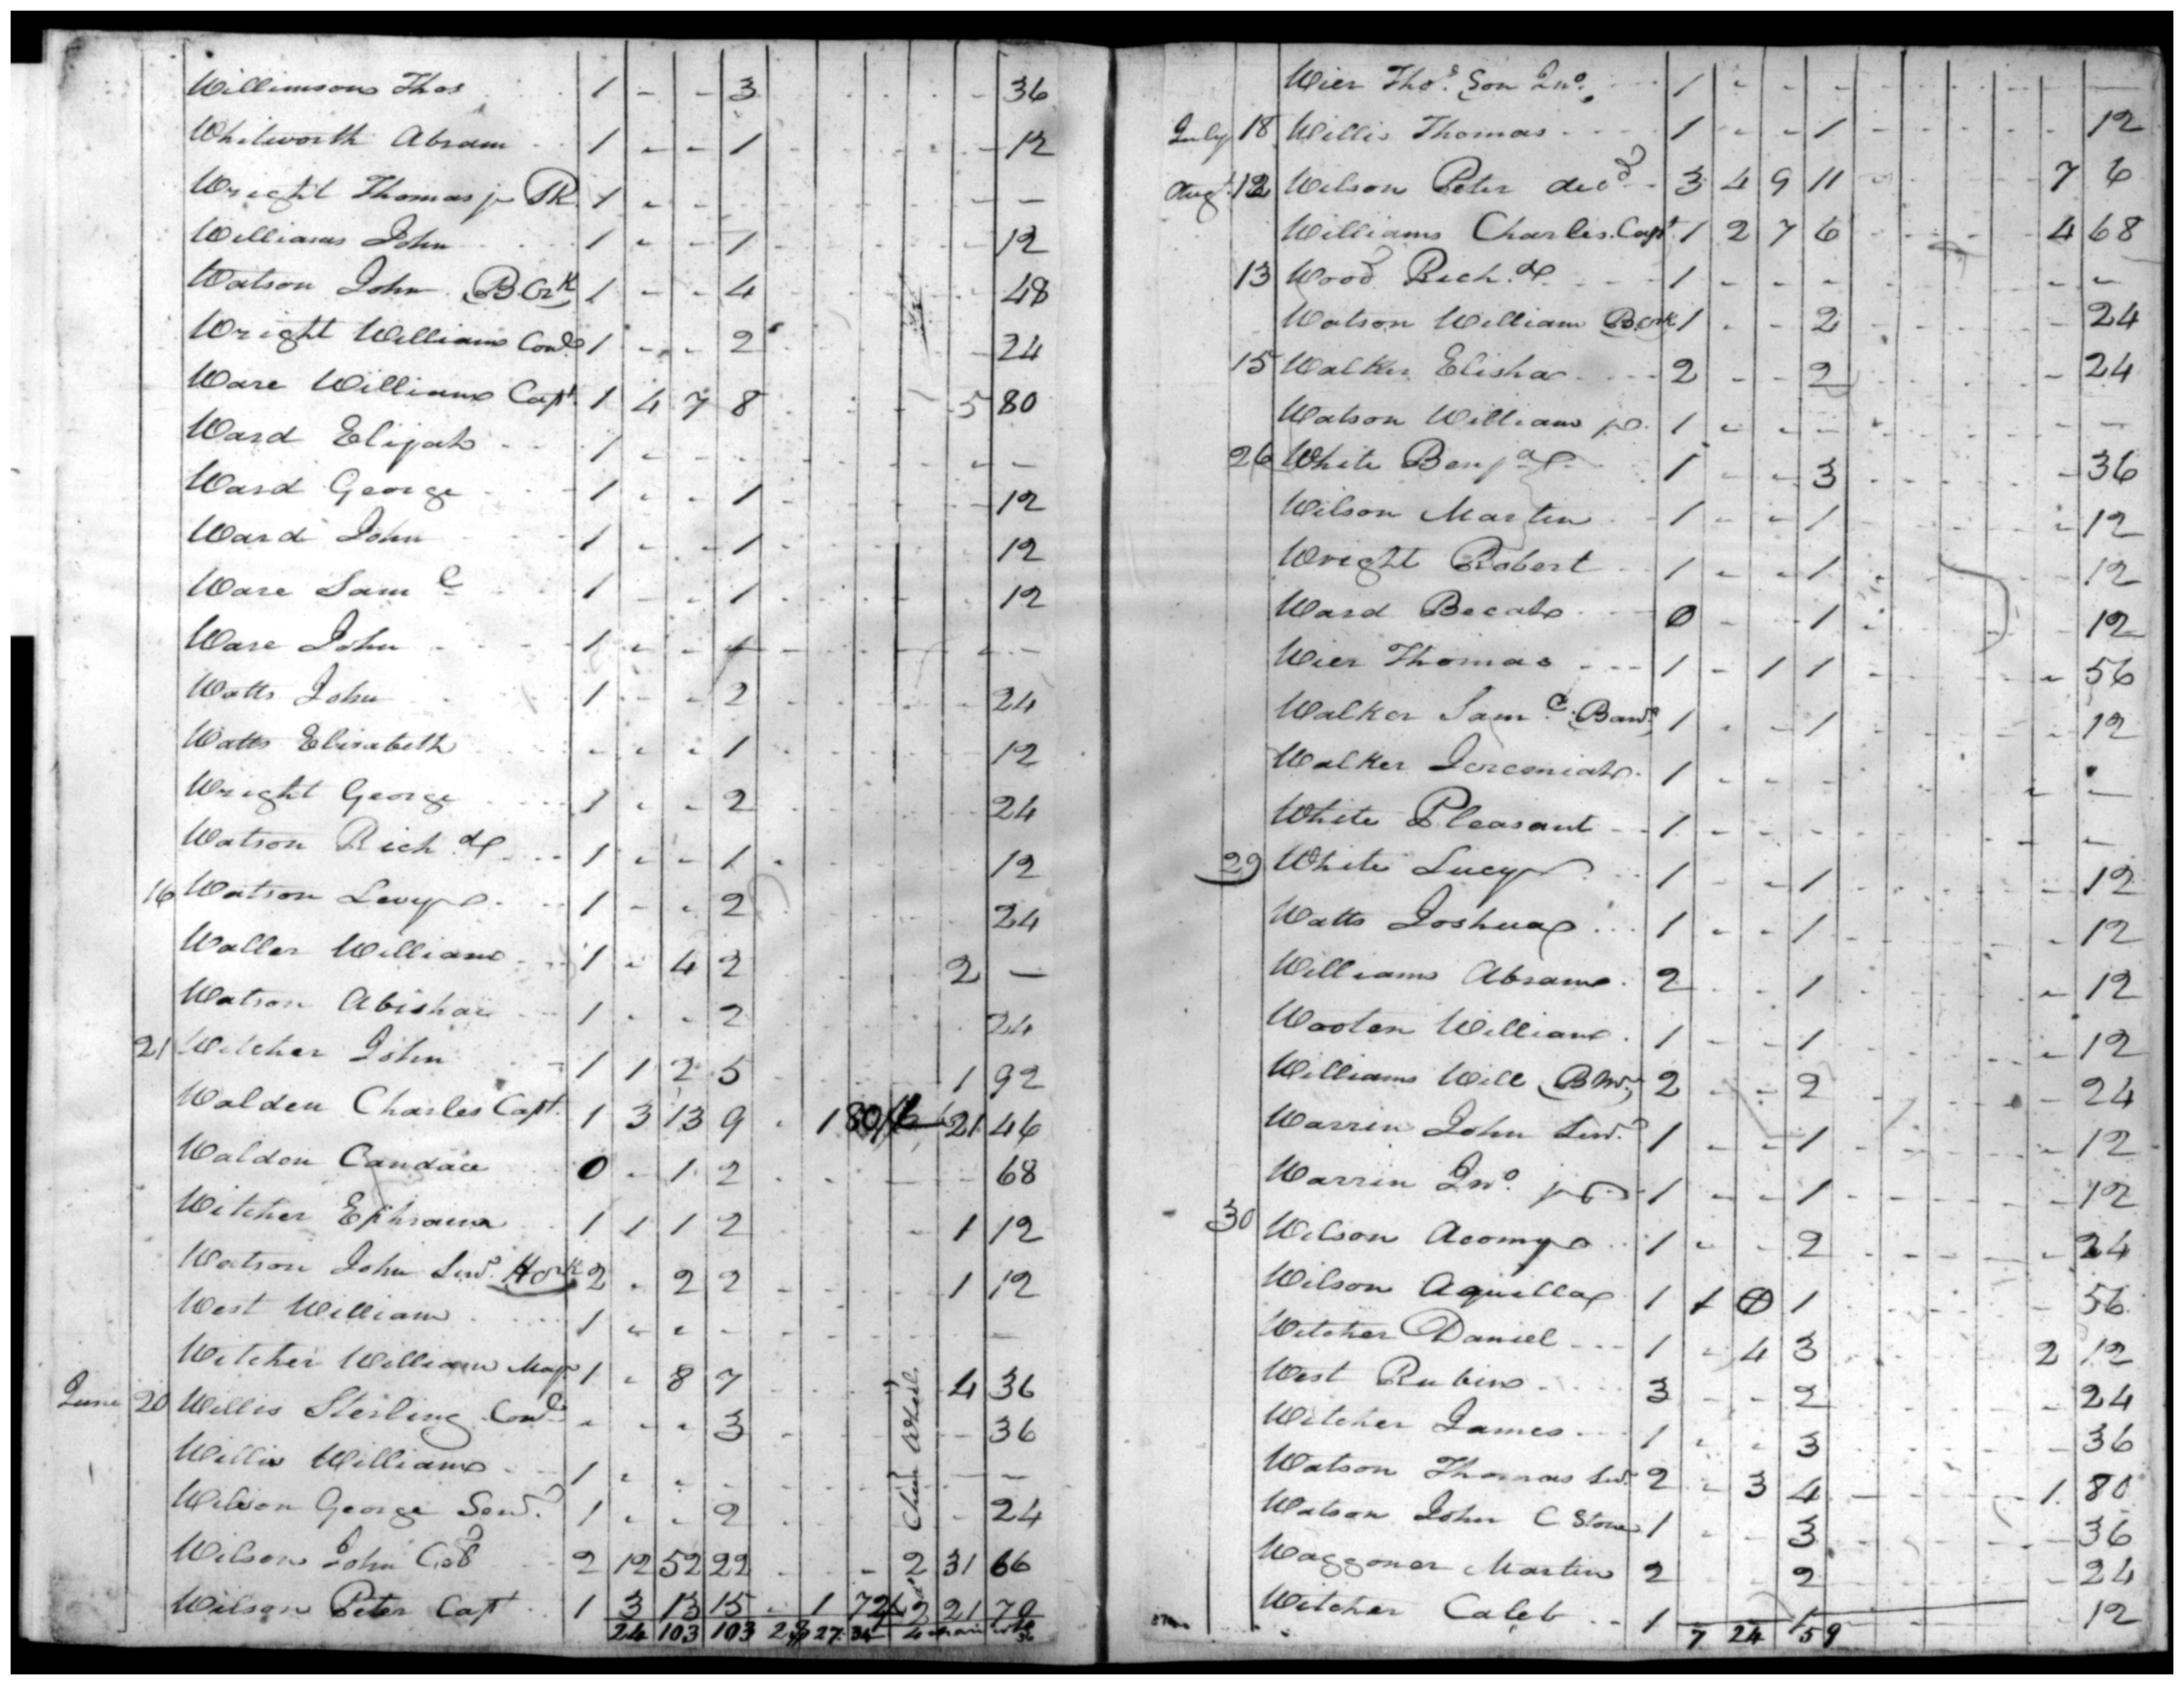 Williamson Thos 1 - - 3 - 36
Whitworth Abram 1 - - 1 - 12
Wright Thomas jr PR 1 - - -
Williams John 1 - - 1 12
Watson John B.Crk 1 - - 4 48
Wright William Cond 1 - - 2 - 24
Ware William Capt. 1 4 7 8 5 80
Ward Elijah 1 - - -
Ward George 1 - - 1 12
Ward John 1 - - 1 12
Ware Saml 1 - - 1 12
Ware John 1 - - 1 - -
Watts John 1 - - 2 24
Watts Elizabeth - - - 1 12
Wright George 1 - - 2 24
Watson Richd 1 - - 1 12
16 Watson Levy 1 - - 2 24
Waller William 1 - 4 2 2 —
Watson Abishai 1 - - 2 24
21 Witcher John 1 1 2 5 1 92
Walden Charles Capt. 1 3 13 9 - 1 80 21 46
Walden Candace 0 - 1 2 68
Witcher Ephraim 1 1 1 2 1 12
Watson John Senr. H Crk 2 - 2 2 1 12
West William 1 - - - —
Witcher William Majr 1 - 8 7 4 36
June 20 Willis Sterling Cond - - - 3 36
Willis William 1 - - - —
Wilson George Senr. 1 - - 2 24
Wilson John Col 2 12 52 22 - 2 31 66
Wilson Peter Capt 1 3 13 15 - 1 72 2 21 70
24 103 103 28 27 4
Chair Wheel.
Wier Thos. Son Jno. 1 - - - —
July 18 Willis Thomas 1 - - 1 12
Augt. 12 Wilson Peter decd 3 4 9 11 7 6
Williams Charles Capt 1 2 7 6 4 68
13 Wood Richd 1 - - - - -
Watson William B.Crk 1 - - 2 24
15 Walker Elisha 2 - - 2 24
Watson William jr. 1 - - - - —
26 White Benja 1 - - 3 36
Wilson Martin 1 - - 1 12
Wright Robert 1 - - 1 12
Ward Becah 0 - - 1 12
Wier Thomas 1 - 1 1 56
Walker Saml. Banr 1 - - 1 12
Walker Jeremiah 1 - - - —
White Pleasant 1 - - - —
29 White Lucy 1 - - 1 12
Watts Joshua 1 - - 1 12
Williams Abram 2 - - 1 12
Wooten William 1 - - 1 12
Williams Will 2 - - 2 24
Warrin John Senr. 1 - - 1 12
Warrin Jno. jr 1 - - 1 12
30 Wilson Acomy 1 - - 2 24
Wilson Aquilla 1 1 1 56
Witcher Daniel 1 - 4 3 2 12
West Rubin 3 - - 2 24
Witcher James 1 - - 3 36
Watson Thomas Senr. 2 - 3 4 1 80
Watson John C Stone 1 - - 3 36
Waggoner Martin 2 - - 2 24
Witcher Caleb 1 - - 1 12
7 24 59